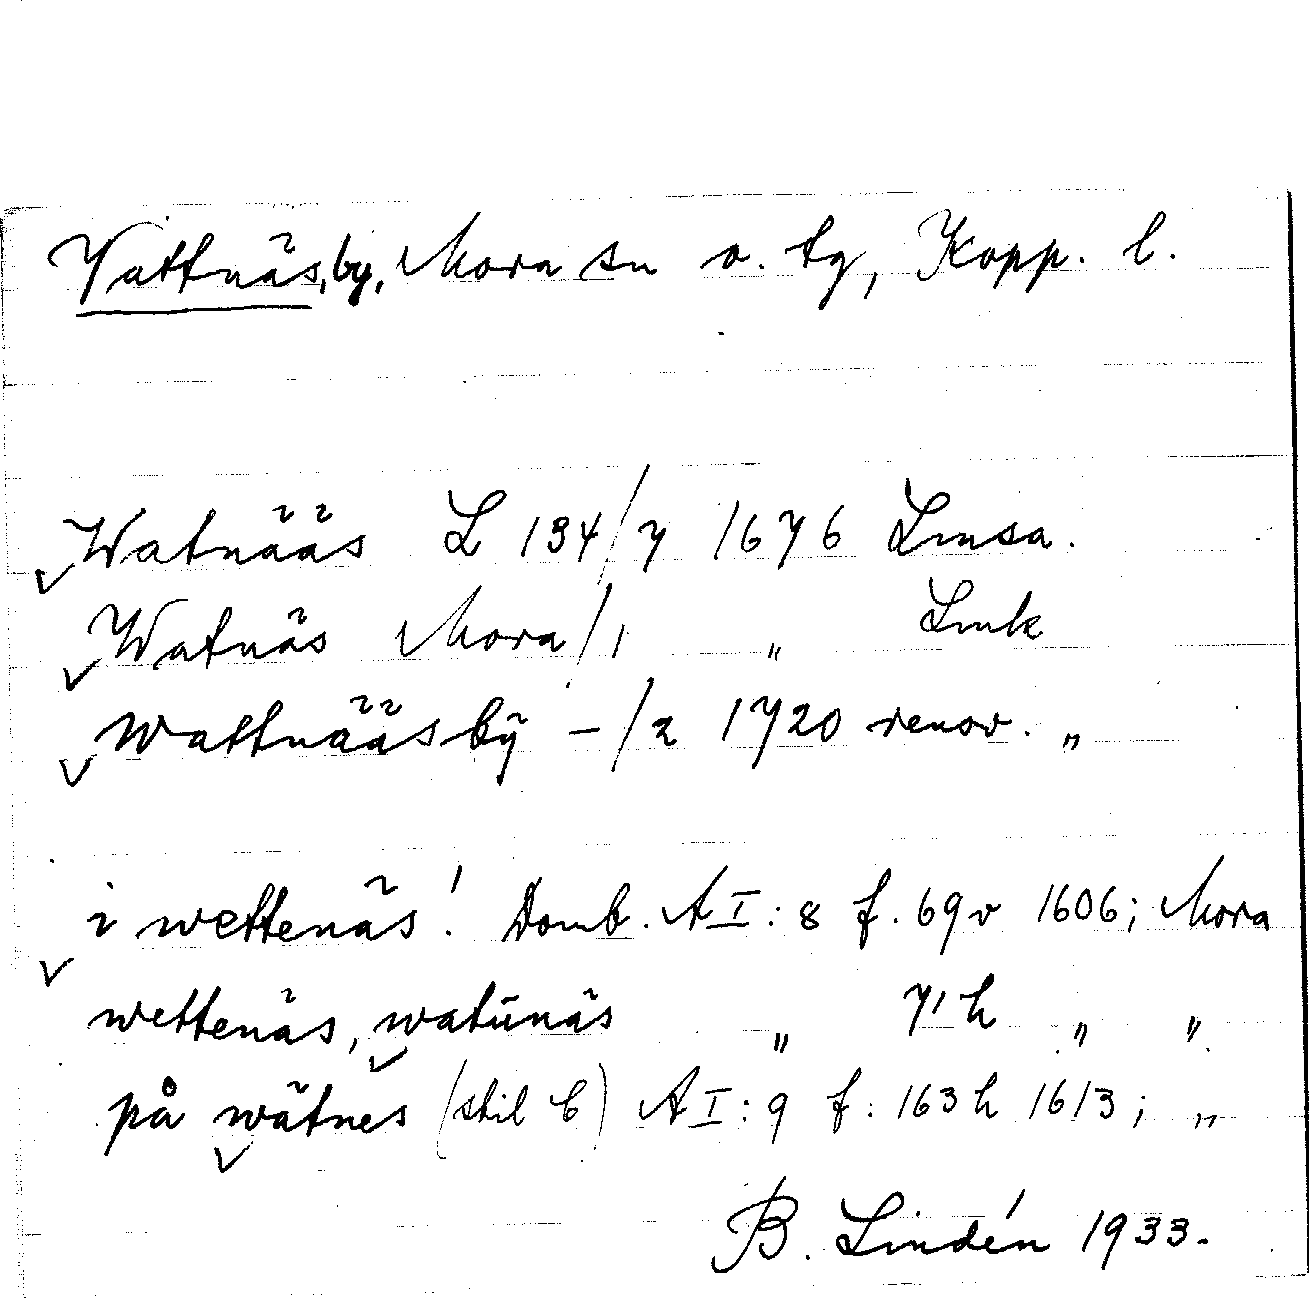 Vattnäs, by, Mora sn o. tg, Kopp. l.
Watnääs L 134/7 1676 Lmsa.
Watnäs Mora/1 „ Lmk
Wattnääs bÿ -/2 1720 renov. „
i wettenäs! Domb. AI:8 f. 69v 1606; Mora
wettenäs, watünäs „ 71h „ „
på wätnes (stil C) AI:9 f. 163h 1613; „
B. Lindén 1933.